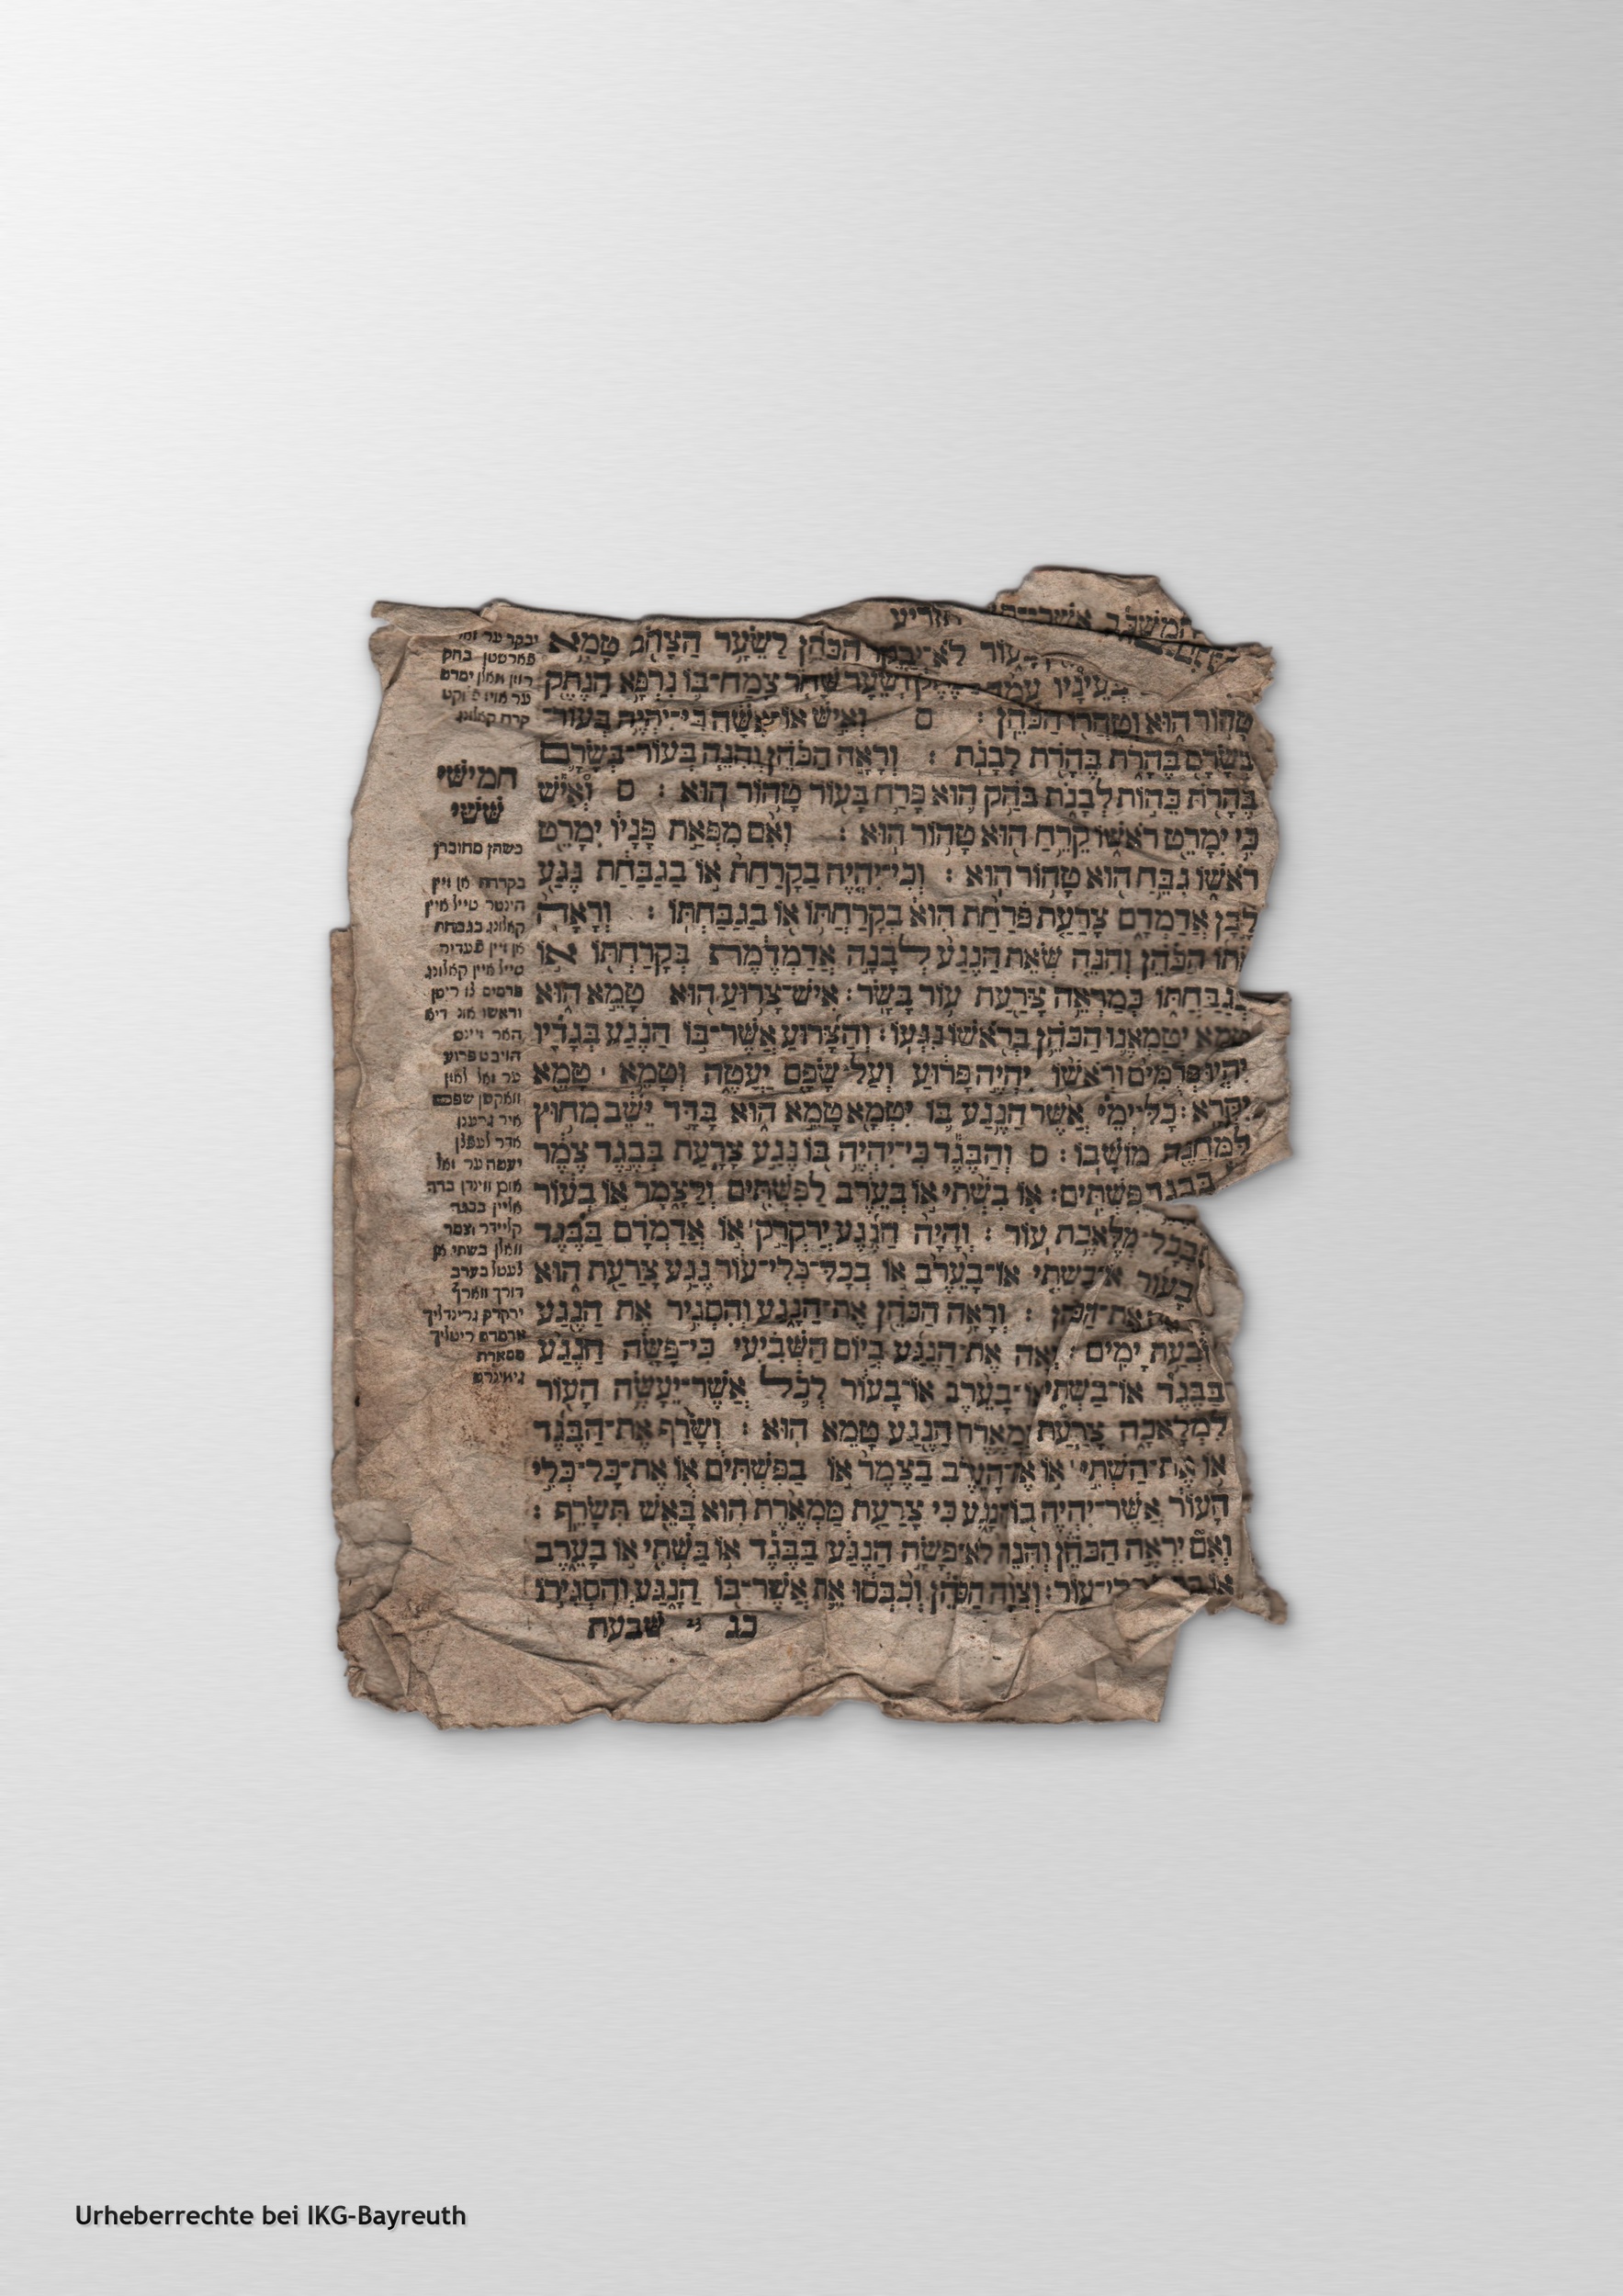 המשכב אשר תזריע
עור לא יבקר הכהן לשער הצהב טמא
בעיניו עמד ושער שחר צמח־בו נרפא הנתק
טהור הוא וטהרו הכהן : ס ואיש או־אשה כי־יהיה בעור־
בשרם בהרת בהרת לבנת : וראה הכהן והנה בעור־בשרם
בהרת כהות לבנת בהק הוא פרח בעור טהור הוא : ס ואיש
כי ימרט ראשו קרח הוא טהור הוא : ואם מפאת פניו ימרט
ראשו גבח הוא טהור הוא : וכי־יהיה בקרחת או בגבחת נגע
לבן אדמדם צרעת פרחת הוא בקרחתו או בגבחתו : וראה
אתו הכהן והנה שאת הנגע לבנה אדמדמת בקרחתו או
בגבחתו כמראה צרעת עור בשר : איש־צרוע הוא טמא הוא
טמא יטמאנו הכהן בראשו נגעו : והצרוע אשר־בו הנגע בגדיו
יהיו פרמים וראשו יהיה פרוע ועל־שפם יעטה וטמא ׀ טמא
יקרא : כל־ימי אשר הנגע בו יטמא טמא הוא בדד ישב מחוץ
למחנה מושבו : ס והבגד כי־יהיה בו נגע צרעת בבגד צמר
בבגד פשתים : או בשתי או בערב לפשתים ולצמר או בעור
בכל־מלאכת עור : והיה הנגע ירקרק או אדמדם בבגד
בעור או־בשתי או־בערב או בכל־כלי־עור נגע צרעת הוא
את־הכהן : וראה הכהן את־הנגע והסגיר את הנגע
שבעת ימים : וראה את־הנגע ביום השביעי כי־פשה הנגע
בבגד או־בשתי או־בערב או־בעור לכל אשר־יעשה העור
למלאכה צרעת ממארת הנגע טמא הוא : ושרף את־הבגד
או את־השתי או את־הערב בצמר או בפשתים או את־כל־כלי
העור אשר־יהיה בו הנגע כי צרעת ממארת הוא באש תשרף :
ואם יראה הכהן והנה לא־פשה הנגע בבגד או בשתי או בערב
או בכל־כלי־עור : וצוה הכהן וכבסו את אשר־בו הנגע והסגירו
כג 23 שבעת
יבקר ער
פארשטן בהק
קרח קאלונג
חמישי
ששי
כשהן מחוברין
בקרחת אן זיין
הינטר טייל איין
קאלונג בגבחת
אן זיין פעדיר
טייל איין קאלונג
פרמים צו ריסן
וראשו אונ דיא
האר זיינס
הויבט פרוע
יעטה ער זאל
וואלן בשתי אן
צעטל בערב
דורך ווארף
ירקרק גרינדליך
אדמדם ריטליך
ממארת
Urheberrechte bei IKG-Bayreuth